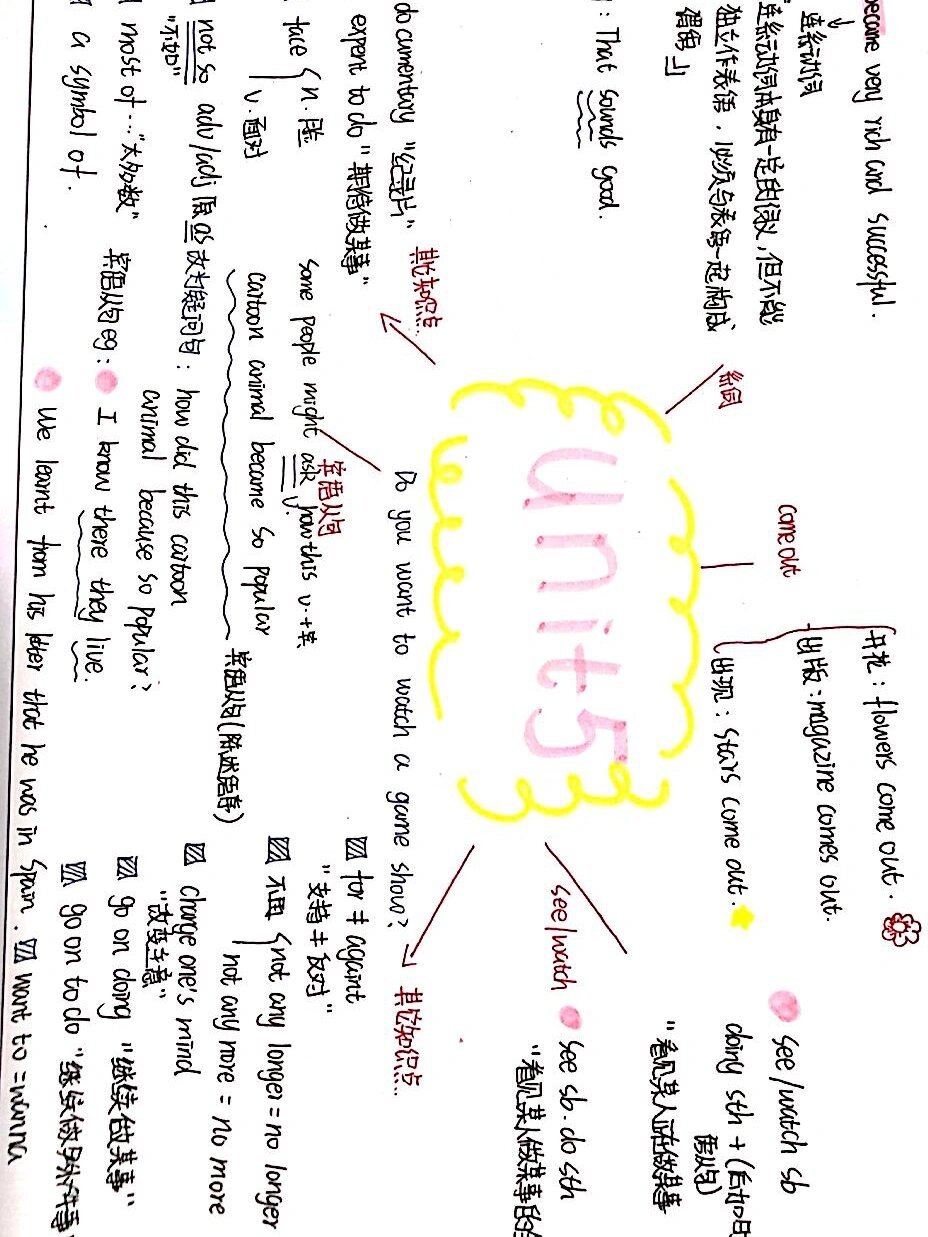 became very rich and successful.
连系动词
连系动词本身有一定的词义,但不能
独立作表语,必须与表语一起构成
谓语」
: That sounds good.
系词
come out
开花: flowers come out.
出版: magazine comes out.
出现: stars come out.
see/watch
see/watch sb
doing sth + (后加
"看见某人正在做某事
see sb. do sth
"看见某人做某事的
Unit 5
Do you want to watch a game show?
其它知识点...
documentary "纪录片"
expent to do "期待做某事"
face { n. 脸
v. 面对
not so adv/adj 原 as
"不如"
most of ... "大多数"
a symbol of.
宾语从句
some people might ask how this v.+宾
cartoon animal became so popular
宾语从句(陈述语序)
改为疑问句: how did this cartoon
animal because so popular?
宾语从句 eg: I know there they live.
We learnt from his letter that he was in Spain.
其它知识点...
for ≠ againt
"支持 ≠ 反对"
不再 { not any longer = no longer
not any more = no more
change one's mind
"改变主意"
go on doing "继续做某事"
go on to do "继续做另外件事
want to = wanna